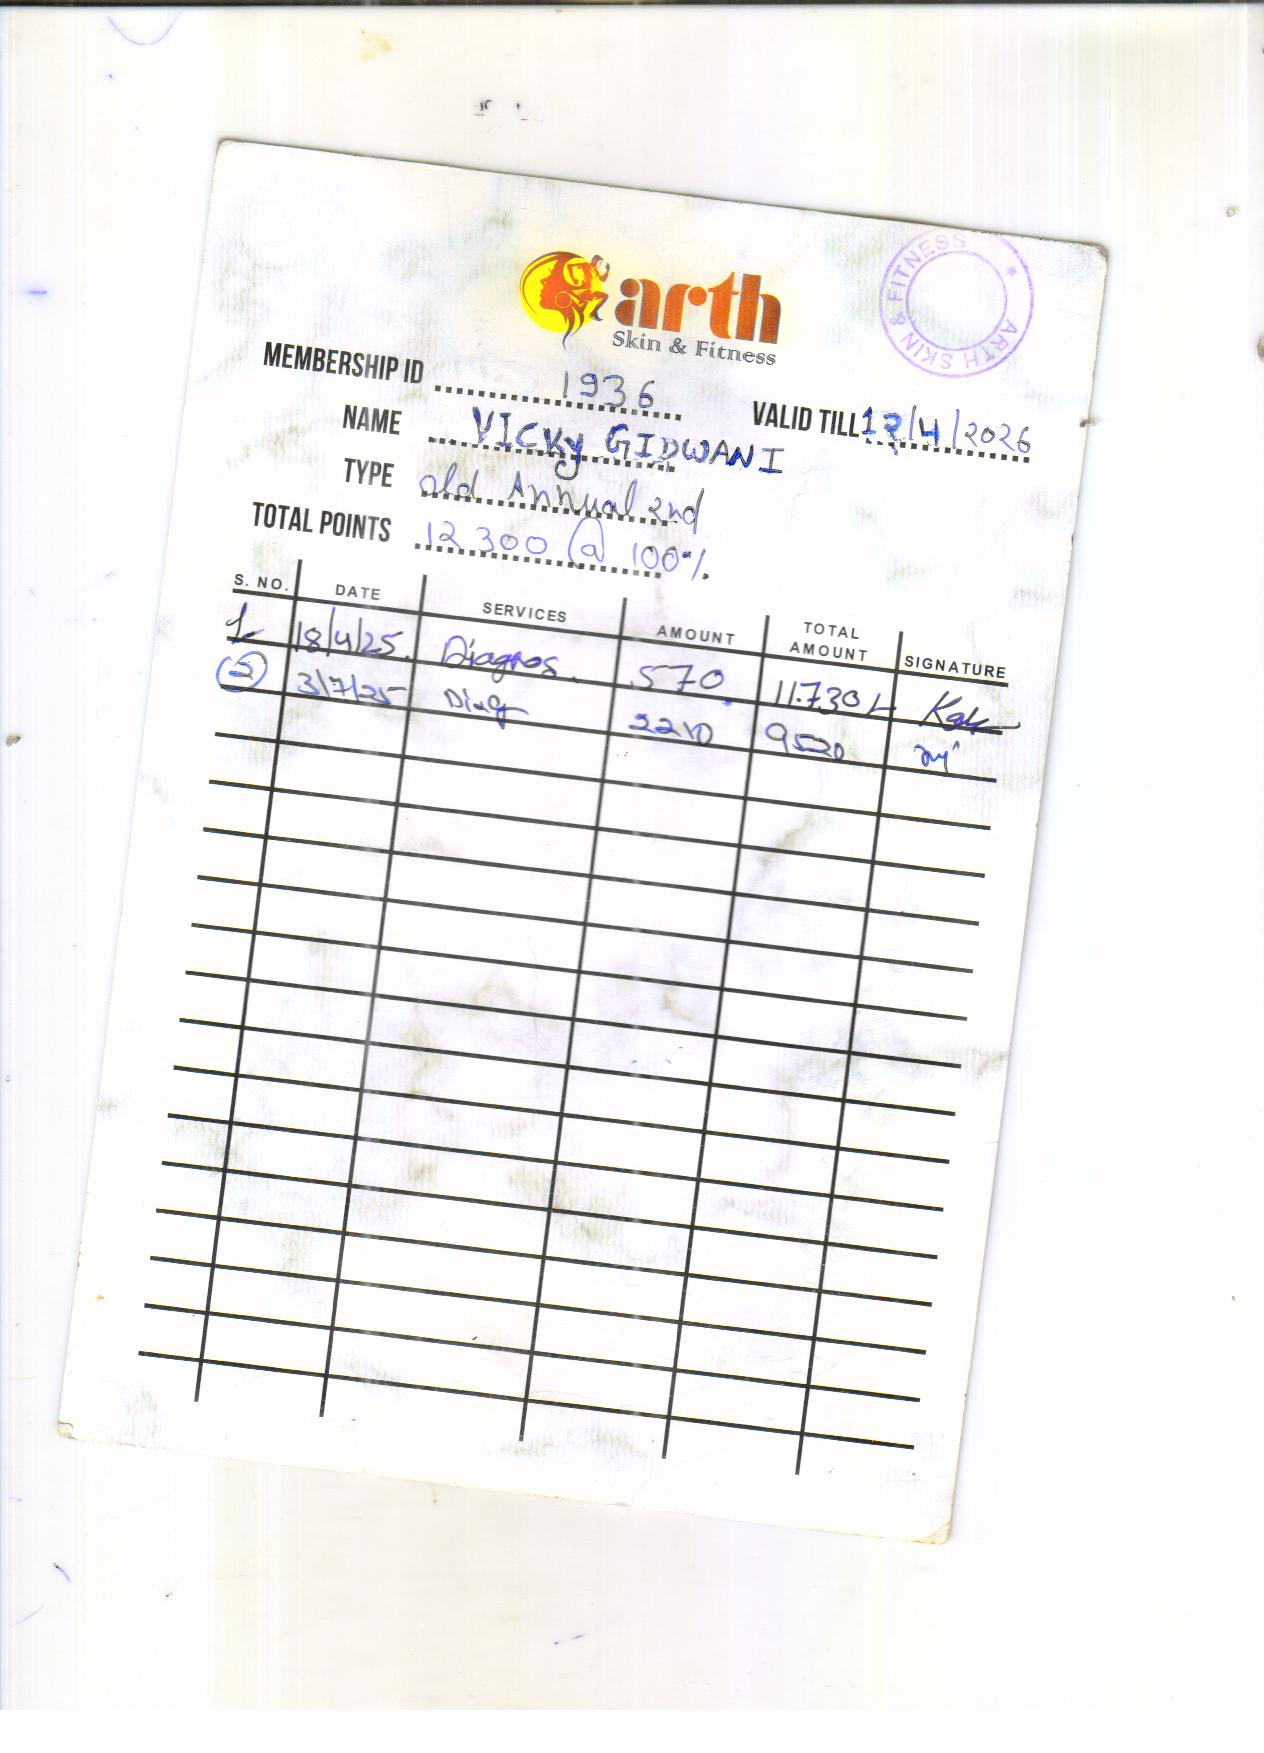 arth
Skin & Fitness
ARTH SKIN & FITNESS ★
MEMBERSHIP ID 1936
VALID TILL 17/4/2026
NAME VICKY GIDWANI
TYPE old Annual 2nd
TOTAL POINTS 12300 @ 100%
S. NO. DATE SERVICES AMOUNT TOTAL AMOUNT SIGNATURE
1 18/4/25. Diagnos. 570 11.730/-
2 3/7/25 Diag 2210 9520